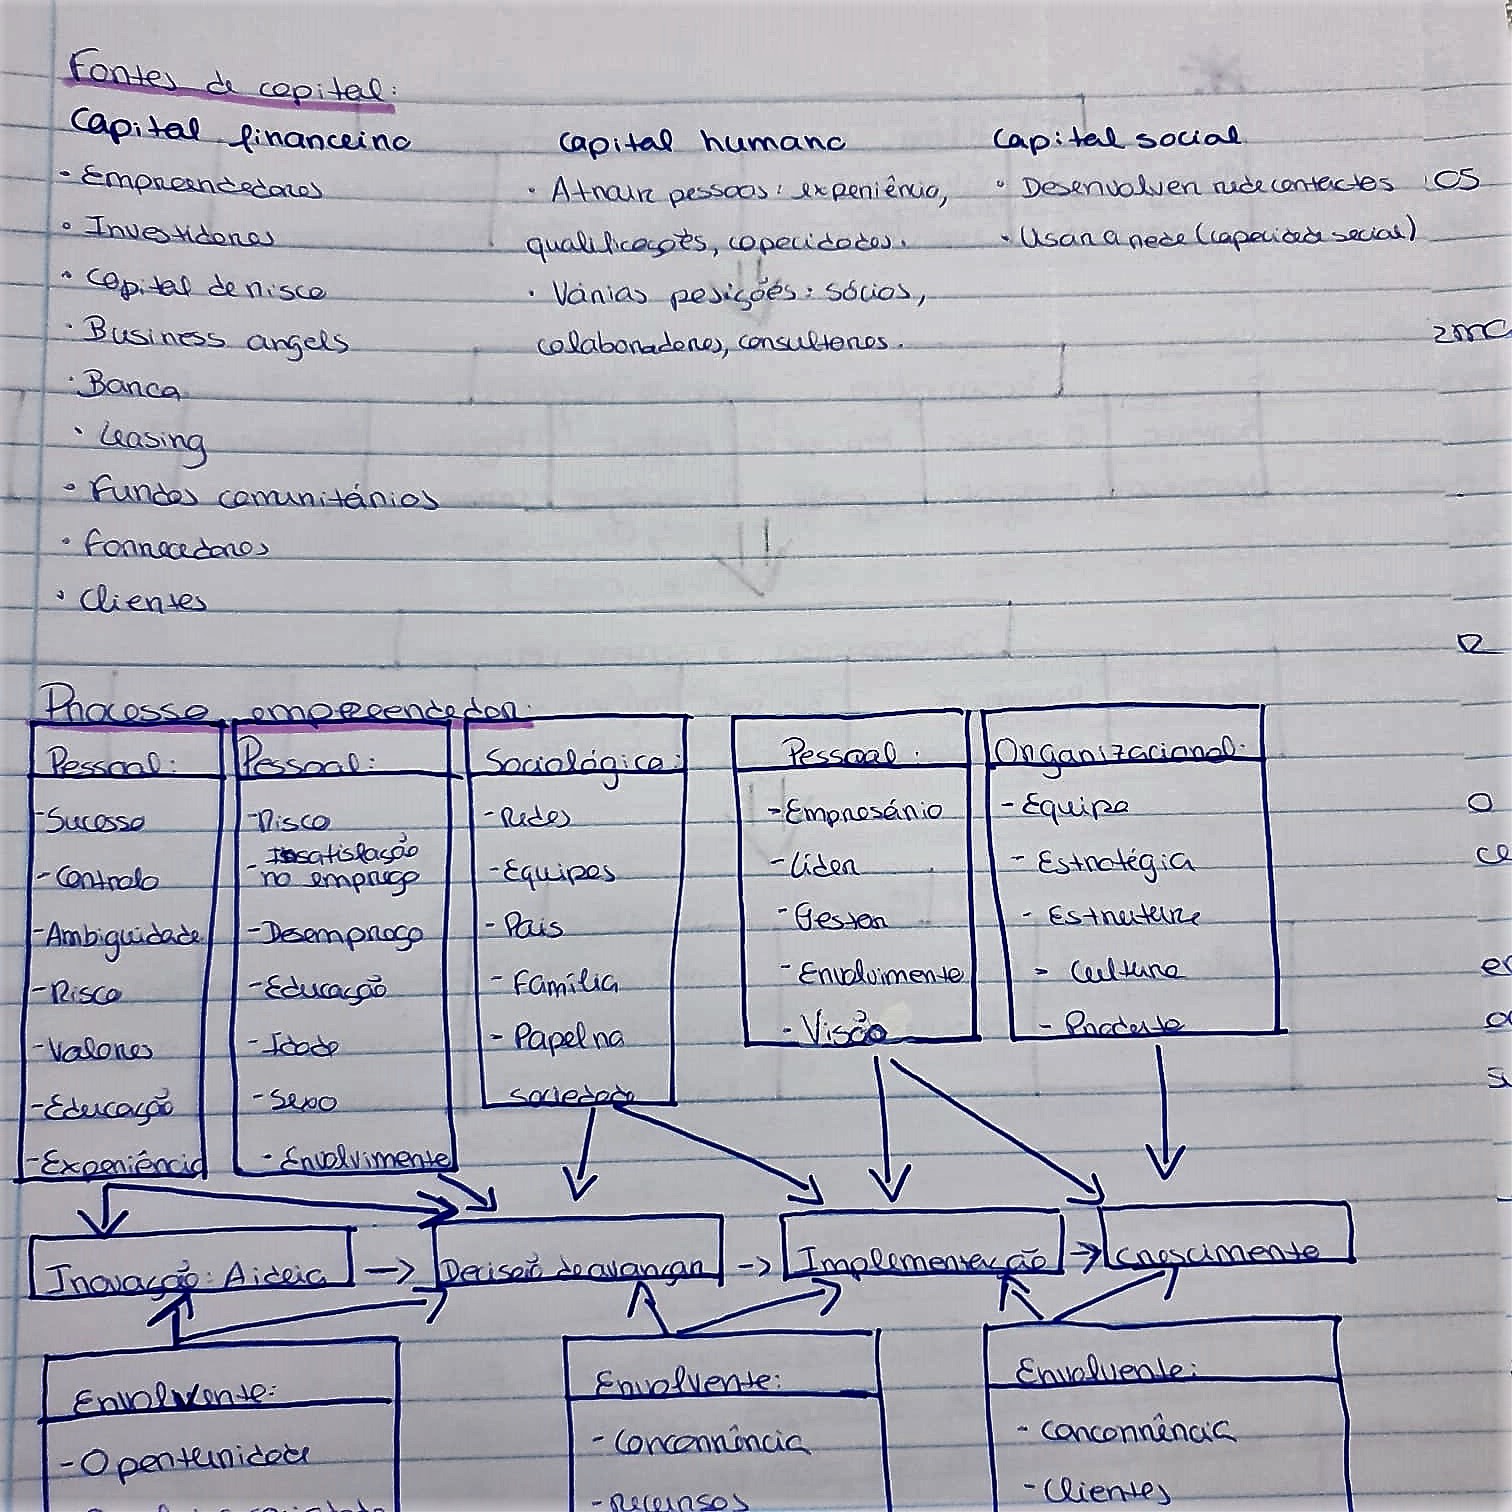 Fontes de capital:
Capital financeiro
- Empreendedores
• Investidores
• Capital de risco
· Business angels
· Banca
· Leasing
• Fundos comunitários
· Fornecedores
· Clientes
Capital humano
· Atrair pessoas: experiência,
qualificações, capacidades.
· Várias posições: sócios,
colaboradores, consultores.
Capital social
• Desenvolver rede contactos
· Usar a rede (capacidade social)
Processo empreendedor:
Pessoal:
- Sucesso
- Controlo
- Ambiguidade
- Risco
- Valores
- Educação
- Experiência
Pessoal:
- Risco
- Insatisfação
no emprego
- Desemprego
- Educação
- Idade
- Sexo
- Envolvimento
Sociológico:
- Redes
- Equipas
- Pais
- Família
- Papel na
sociedade
Pessoal:
- Empresário
- Líder
- Gestor
- Envolvimento
- Visão
Organizacional:
- Equipa
- Estratégia
- Estrutura
- Cultura
- Produto
Inovação: A ideia
Decisão de avançar
Implementação
Crescimento
Envolvente:
- Oportunidade
Envolvente:
- Concorrência
- Recursos
Envolvente:
- Concorrência
- Clientes